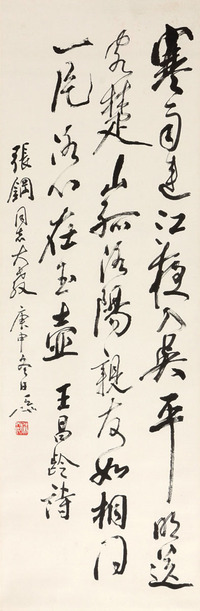 寒雨連江夜入吳平明送
客楚山孤洛陽親友如相问
一片冰心在玉壺 王昌齡詩
張鋼同志大教 庚申冬日